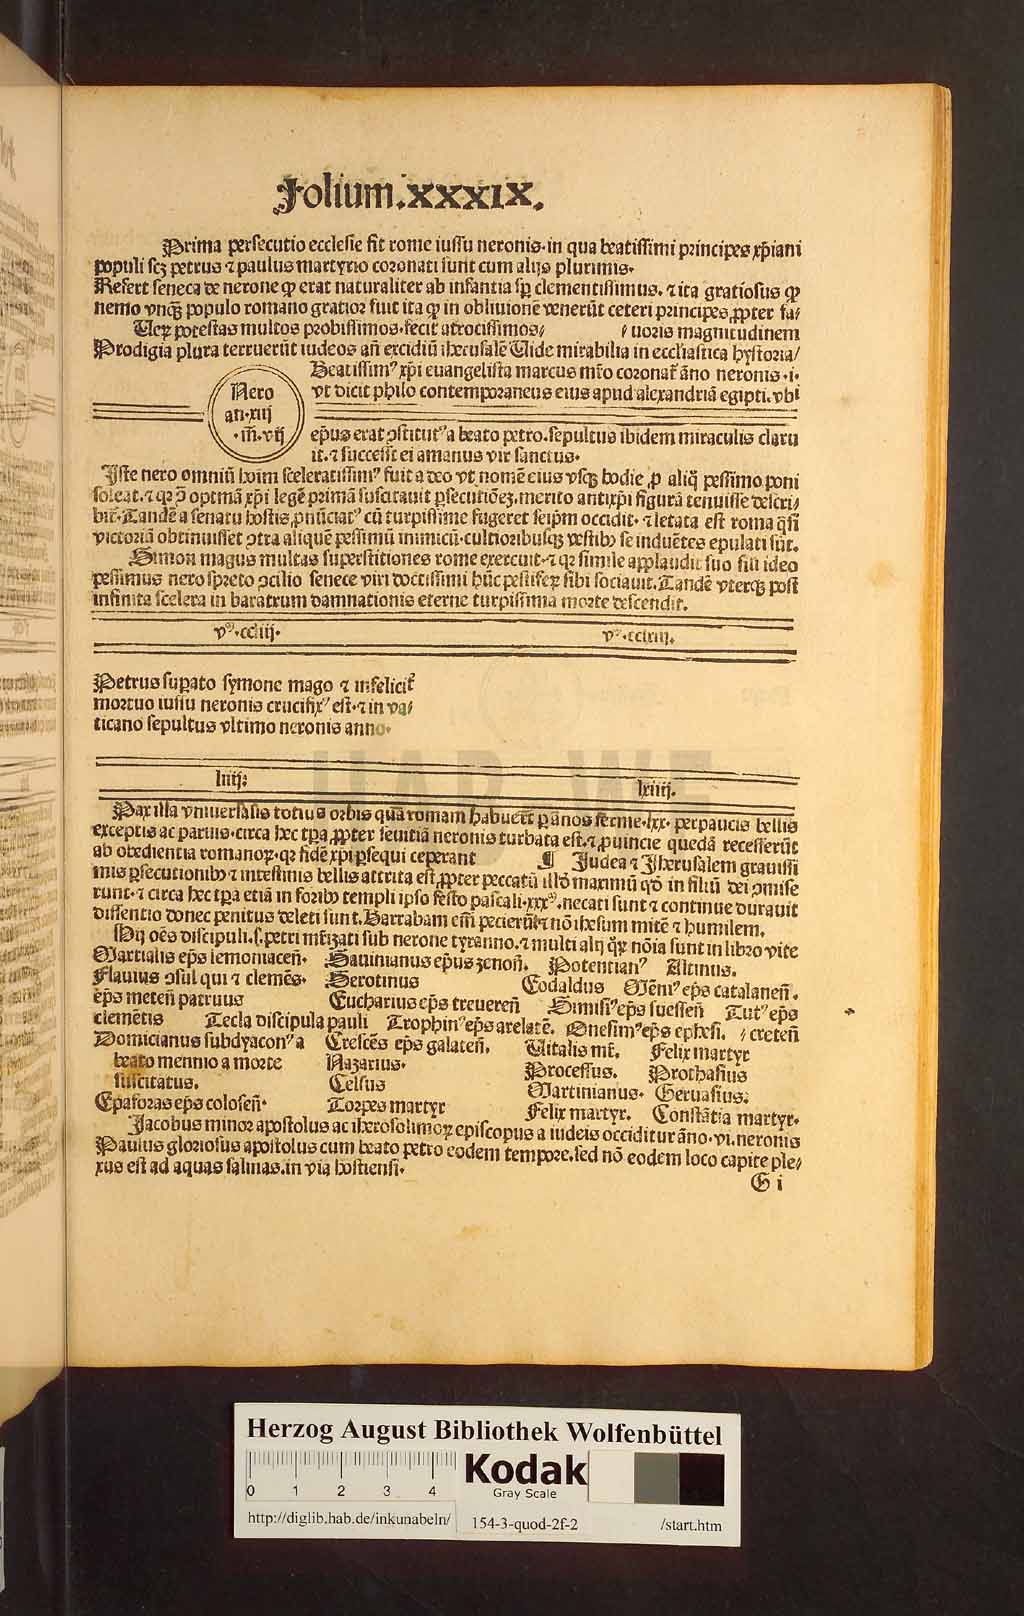 Folium.XXXIX.
Prima persecutio ecclesie fit rome iussu neronis. in qua beatissimi principes xp̄iani
populi scꝫ petrus ⁊ paulus martyrio coronati sunt cum alijs plurimis.
Refert seneca de nerone ꝙ erat naturaliter ab infantia sp̄ clementissimus. ⁊ ita gratiosus ꝙ
nemo vnqꝫ populo romano gratior fuit ita ꝙ in obliuionē venerūt ceteri principes ꝓpter fa/
Veꝝ potestas multos probissimos. fecit atrocissimos/ / uoris magnitudinem
Prodigia plura terruerūt iudeos añ excidiū iherusalē Vide mirabilia in ecclīastica hystoria/
Beatissimꝰ xp̄i euangelista marcus mr̄io coronat᷑ āno neronis .i.
vt dicit philo contemporaneus eius apud alexandriā egipti. vbi
Nero
an. xiij
.m̄. vij
ep̄us erat ꝯstitutꝰ a beato petro. sepultus ibidem miraculis claru
it. ⁊ successit ei amanus vir sanctus.
Iste nero omniū hoīm sceleratissimꝰ fuit a deo vt nomē eius vsqꝫ hodie ꝑ aliqͥ pessimo poni
soleat. ⁊ qꝛ ꝯ̄ optmā xp̄i legē primā suscitauit ꝑsecutiōeꝫ. merito antixp̄i figurā tenuisse describi/
bit᷑. Tandē a senatu hostis ꝓnūciatꝰ cū turpissime fugeret seip̄m occidit. ⁊ letata est roma qͣsi
victoriā obtinuisset ꝯtra aliquē pessimū inimicū. cultioribusqꝫ vestibꝰ se induētes epulati sūt.
Simon magus multas superstitiones rome exercuit. ⁊ qꝛ simile applaudit suo sīli ideo
pessimus nero spreto ꝯcilio senece viri doctissimi hūc pestifeꝝ sibi sociauit. Tandē vterqꝫ post
infinita scelera in baratrum damnationis eterne turpissima morte descendit.
vᵐ. ccliij. vᵐ. cclxiij.
Petrus suꝑato symone mago ⁊ infelicit᷑
mortuo iussu neronis crucifixꝰ est. ⁊ in va/
ticano sepultus vltimo neronis anno.
liiij. lxiiij.
Pax illa vniuersalis totius orbis quā romam habuer̄t ꝑ ānos ferme .lxx. perpaucis bellis
exceptis ac paruis. circa hec tꝑa ꝓpter seuitiā neronis turbata est. ⁊ ꝓuincie quedā recesserūt
ab obedientia romanoꝝ. qꝛ fidē xp̄i ꝑsequi ceperant ¶ Iudea ⁊ Iherusalem grauissi
mis ꝑsecutionibꝰ ⁊ intestinis bellis attrita est ꝓpter peccatū illō maximū qō in filiū dei ꝯmise
runt. ⁊ circa hec tꝑa etiā in foribꝰ templi ipso festo pascali .xxxᵐ. necati sunt ⁊ continue durauit
dissentio donec penitus deleti sunt. Barrabam em̄ petierūt ⁊ nō ihesum mitē ⁊ humilem.
Hij oēs discipuli. s. petri mr̄izati sub nerone tyranno. ⁊ multi alij qͦꝝ nōia sunt in libro vite
Martialis ep̄s lemoniaceñ. Sauinianus ep̄us zenoñ. Potentianꝰ Altinus.
Flauius ꝯsul qui ⁊ clemēs. Serotinus Eodaldus Mēniꝰ ep̄s catalaneñ.
ep̄s meteñ patruus Eucharius ep̄s treuereñ Simisiꝰ ep̄s suesseñ Titꝰ ep̄s
clemētis Tecla discipula pauli Trophinꝰ ep̄s arelatē. Onesimꝰ ep̄s ephesi. / creteñ
Domicianus subdyaconꝰ a Crescēs ep̄s galateñ. Vitalis mr̄. Felix martyr
beato mennio a morte Nazarius. Processus. Prothasius
suscitatus. Celsus Martinianus. Geruasius.
Epaforas ep̄s coloseñ. Torpes martyr Felix martyr. Constātia martyr.
Jacobus minor apostolus ac iherosolimoꝝ episcopus a iudeis occiditur āno .vi. neronis
Paulus gloriosus apostolus cum beato petro eodem tempore. sed nō eodem loco capite ple/
xus est ad aquas saluias. in via hostiensi.
G i
HAB WF
Herzog August Bibliothek Wolfenbüttel
0 1 2 3 4
Kodak
Gray Scale
http://diglib.hab.de/inkunabeln/ 154-3-quod-2f-2 /start.htm